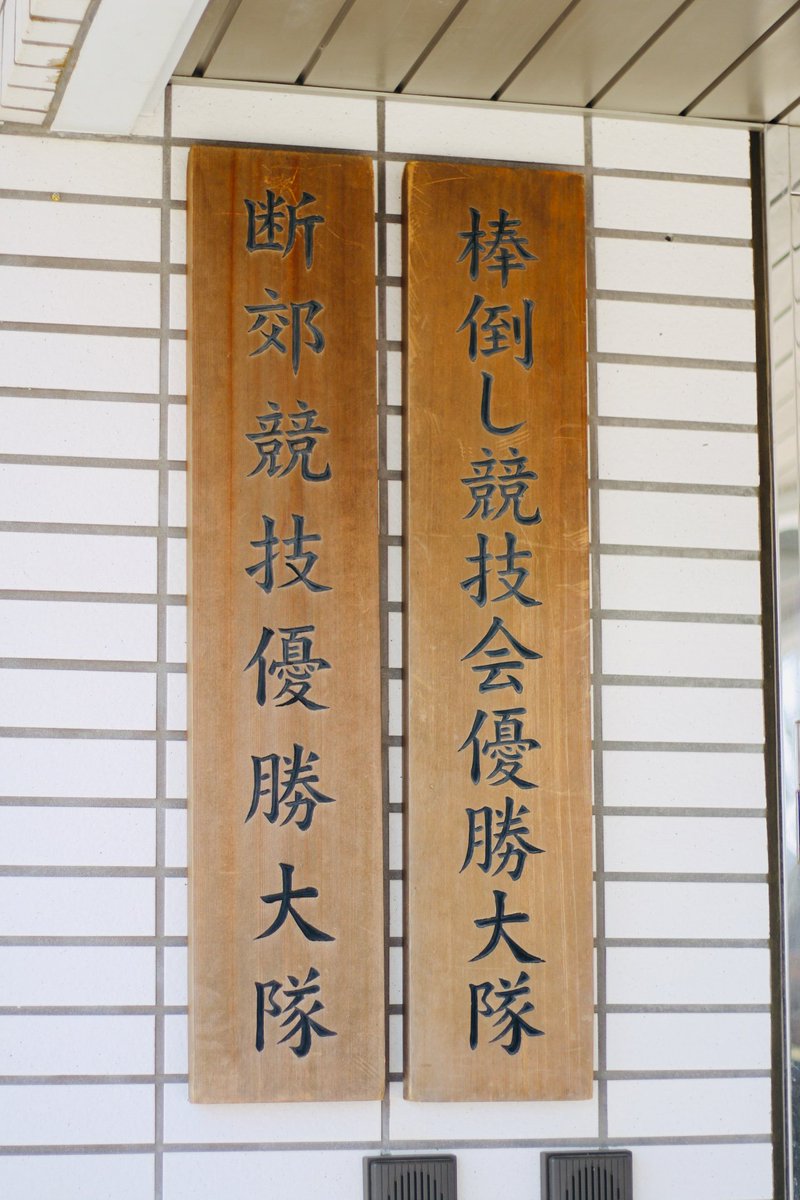 棒倒し競技会優勝大隊
断郊競技優勝大隊